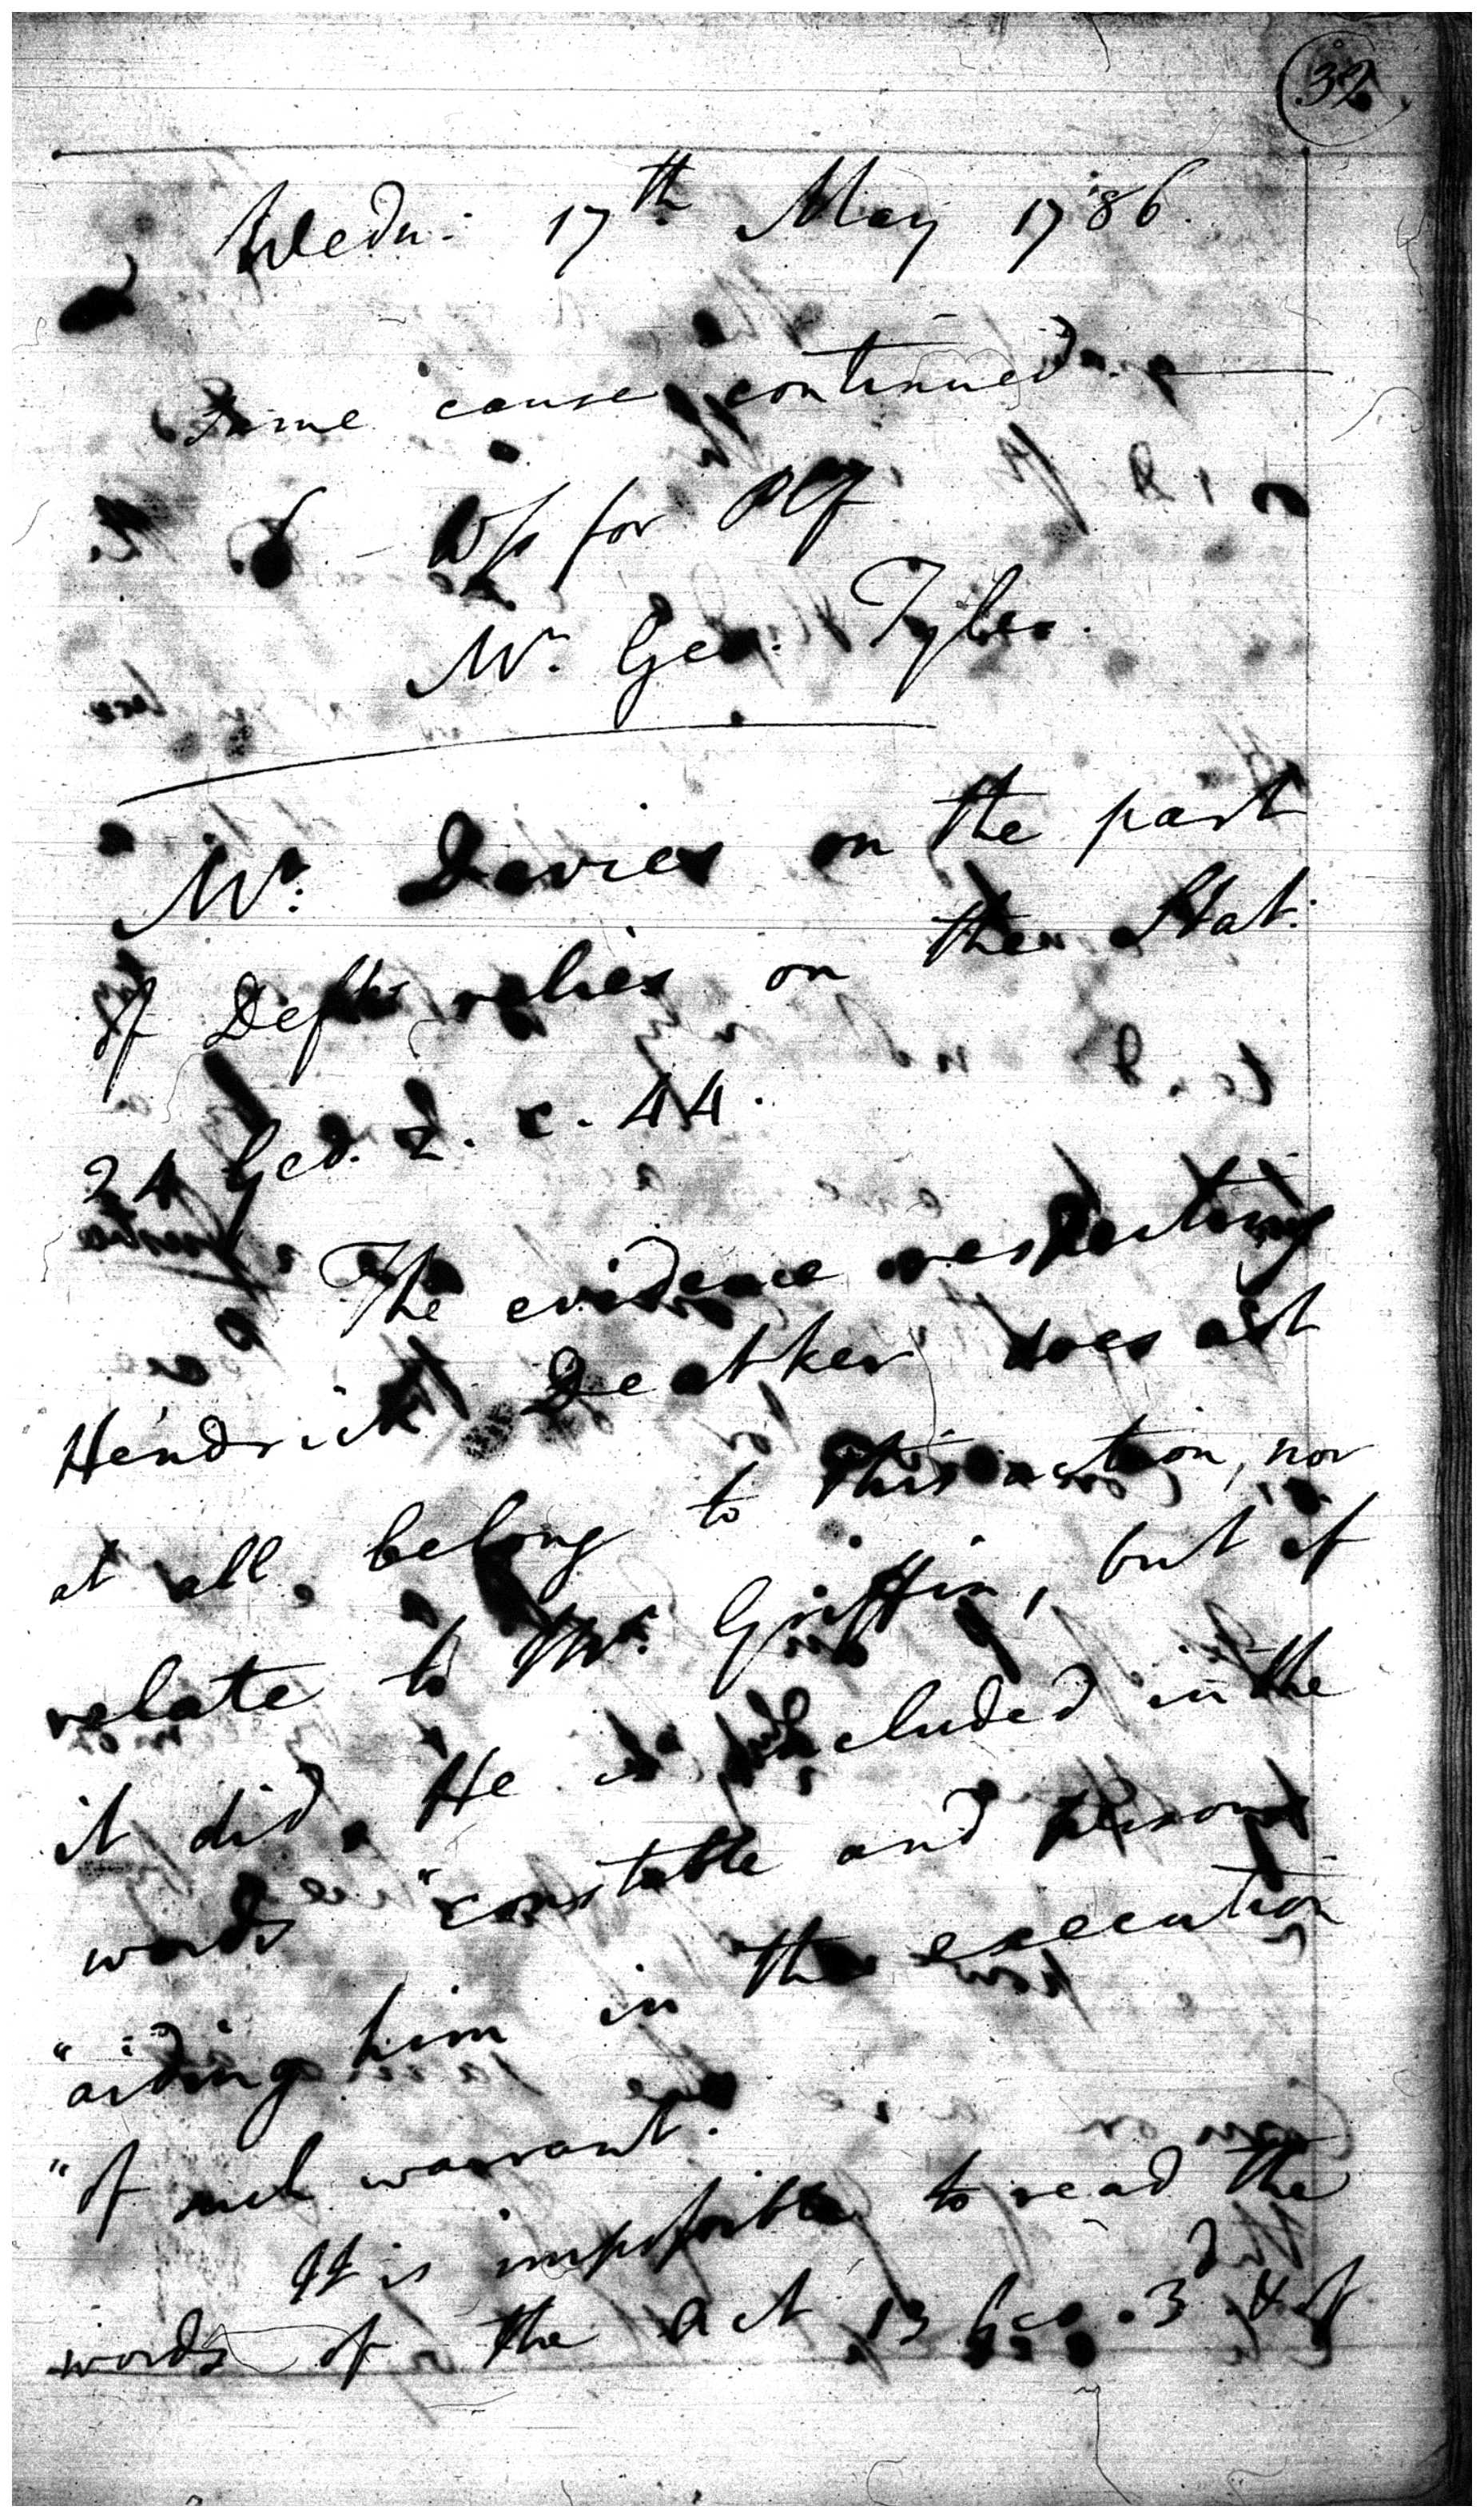 32
Wedn: 17th May 1786.
Same cause continued.
6 - Ws for Plf
Mr. Geo. Tyler.
Mr. Davies on the part
of Defts relies on the Stat.
24 Geo. 2. c. 44.
The evidence respecting
Hendrick does not
at all belong to this action, nor
relate to Mr. Griffin, but if
it did, He is included in the
words "constable and persons
"aiding him in the execution
"of such warrant.
It is impossible to read the
words of the Act 13 Geo. 3 & of